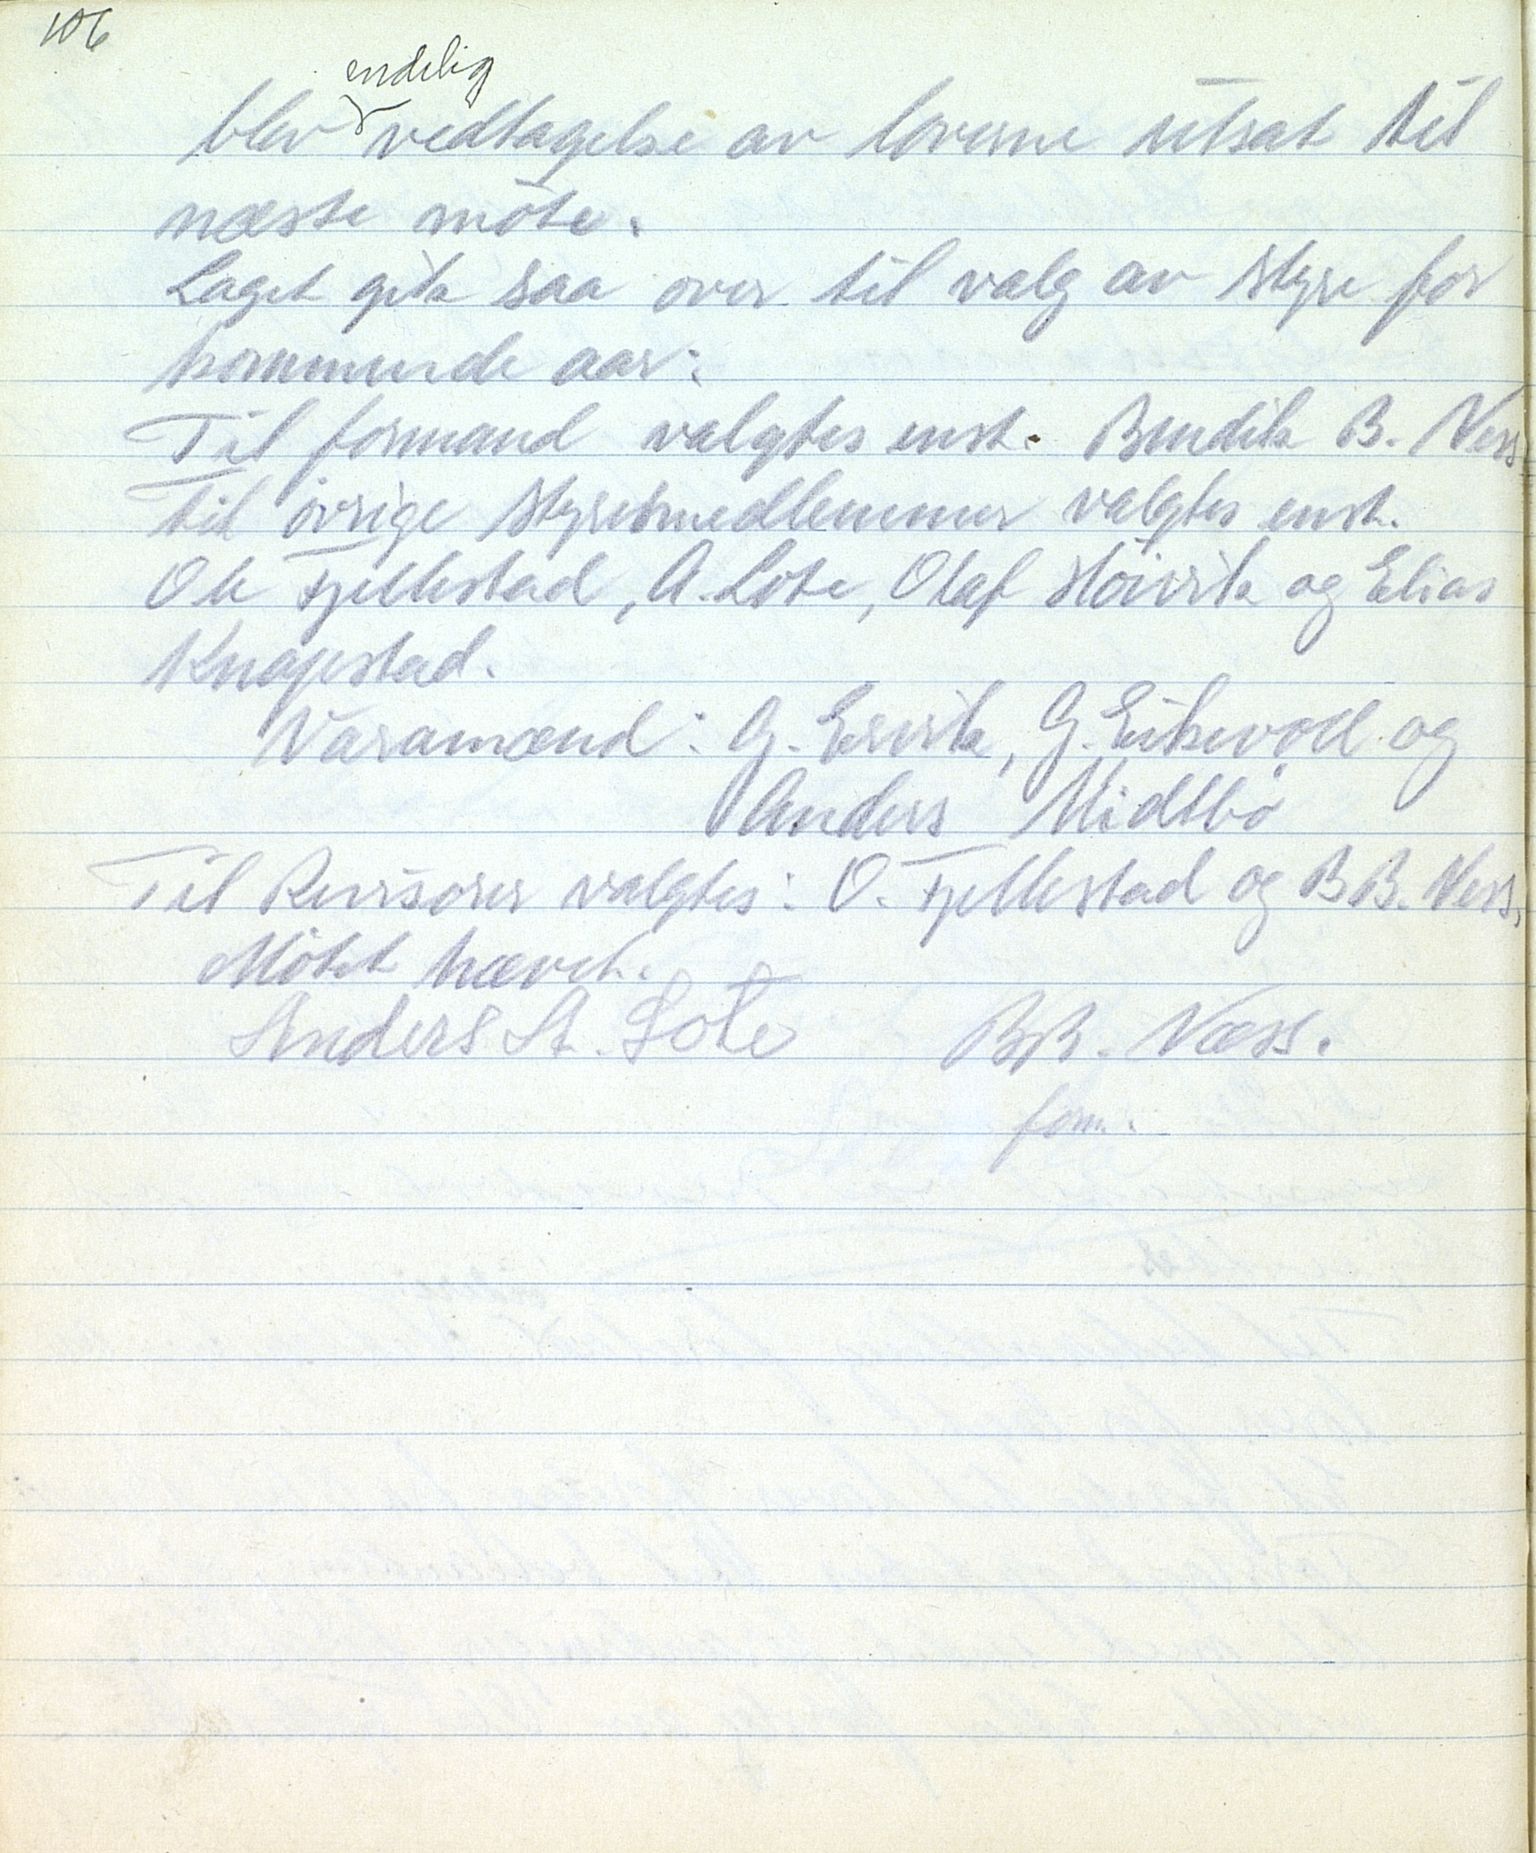 106
endelig
blev vedtagelse av loverne utsat til
næste möte.
Laget gik saa over til valg av styre for
kommende aar:
Til formand valgtes enst. Bendik B. Næss.
Til övrige styresmedlemmer valgtes enst.
Ole Fjellestad, A. Lote, Olaf Höivik og Elias
Knapstad.
Varamænd: G. Ervik, G. Eikevoll og
Anders Midtbö
Til Revisorer valgtes: O. Fjellestad og B.B. Næss.
Mötet hævet.
Anders A. Lote B.B. Næss.
form.